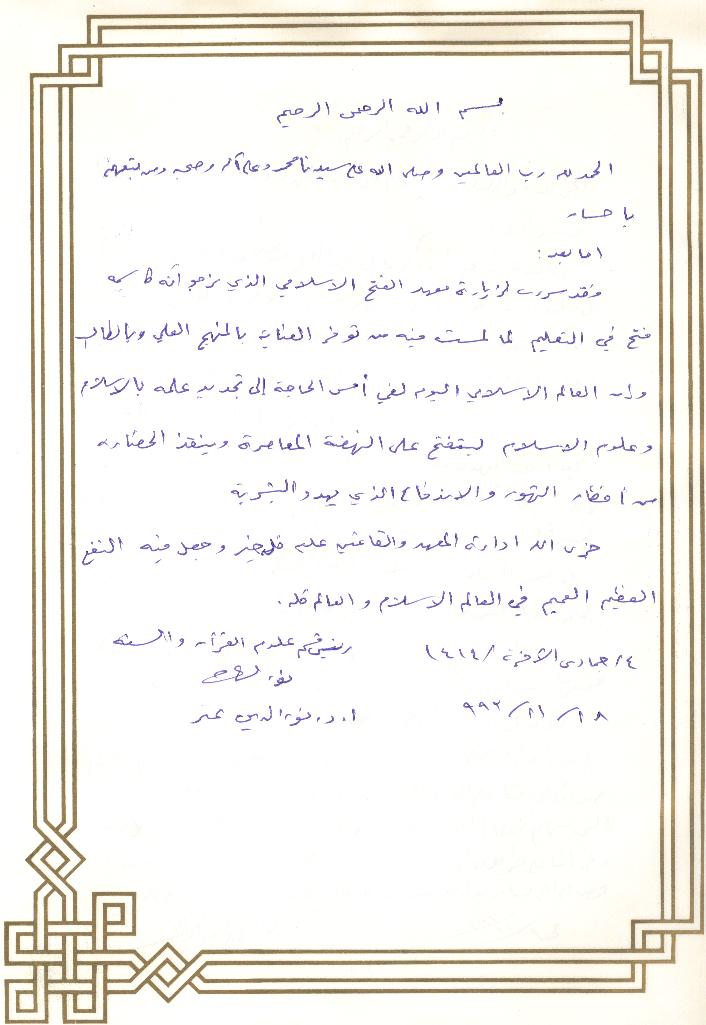 بسم الله الرحمن الرحيم
الحمد لله رب العالمين وصلى الله على سيدنا محمد وعلى آله وصحبه ومن تبعهم
بإحسان
اما بعد:
فقد سررت لزيارة معهد الفتح الاسلامي الذي نرجو أنه كاسمه
فتح في التعليم لما لمست فيه من توفر العناية بالمنهج العلمي وبالطالب
وان العالم الاسلامي اليوم لفي أمس الحاجة إلى تجديد علمه بالاسلام
وعلوم الاسلام ليتفتح على النهضة المعاصرة وينقذ الحضارة
من أخطار التهور والاندفاع الذي يهدد البشرية
جزى الله ادارة المعهد والقائمين عليه كل خير وجعل فيه النفع
العظيم العميم في العالم الاسلام والعالم كله.
٤/جمادى الآخرة/١٤١٤ رئيس قسم علوم القرآن والسنة
١٨/١١/٩٩٣ ا. د. نور الدين عتر